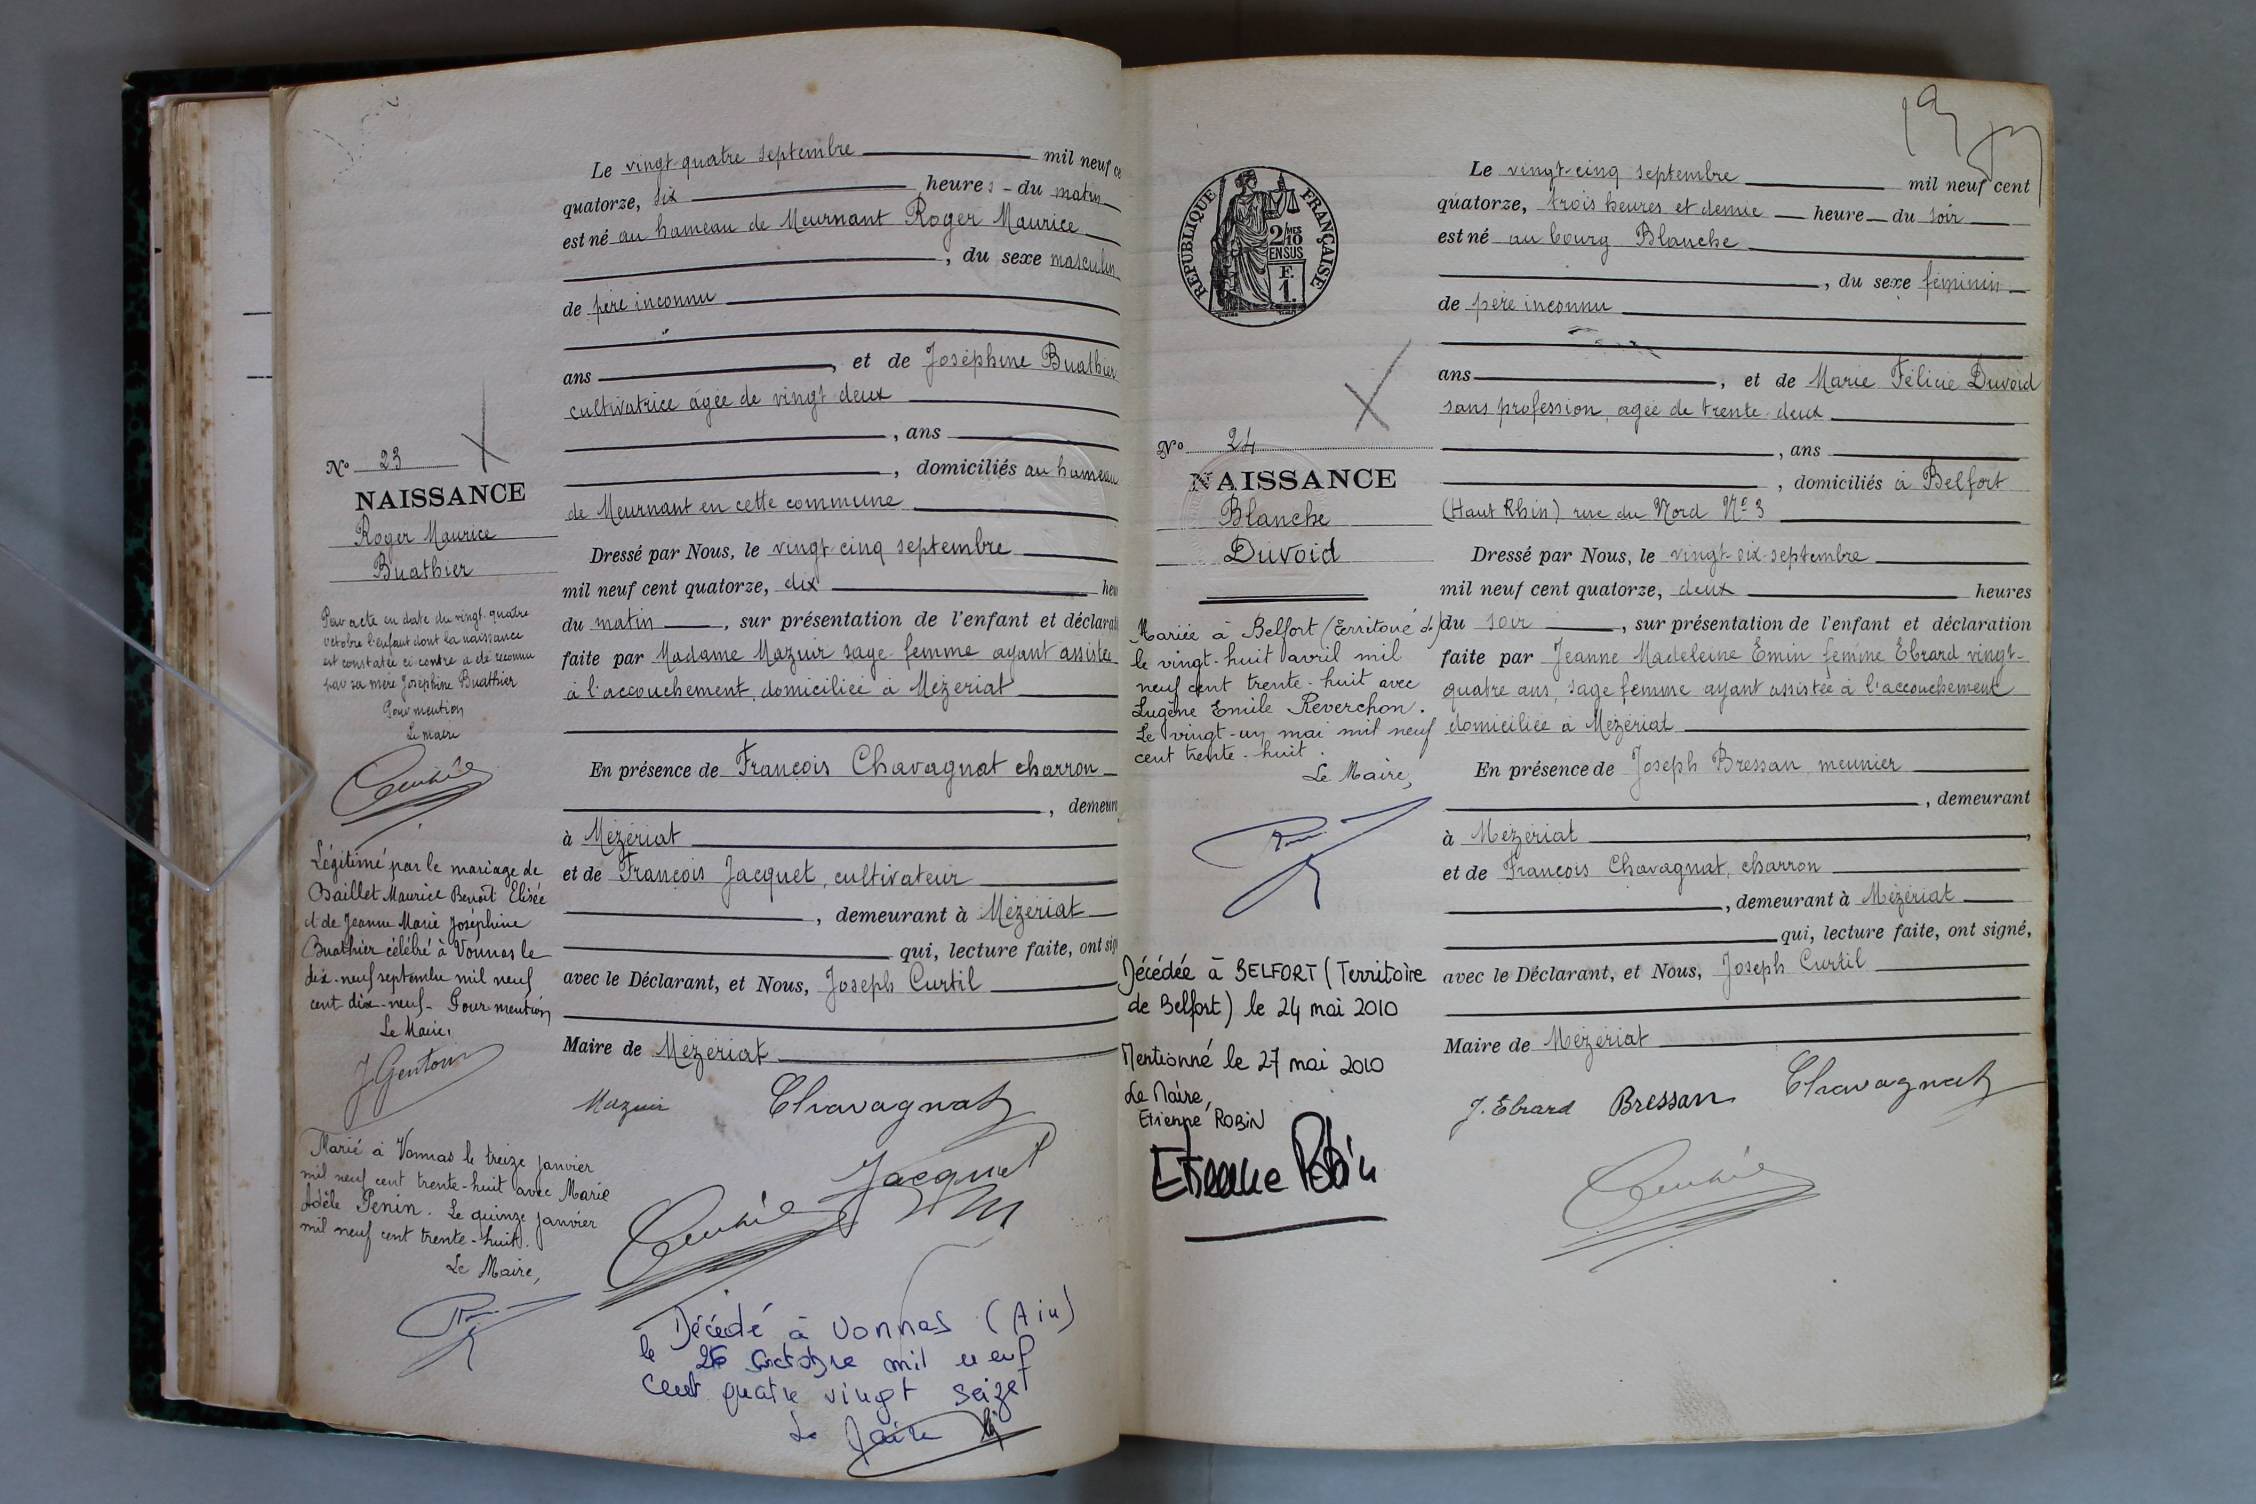 Le vingt-quatre septembre mil neuf ce
quatorze, six heures du matin
est né au hameau de Meurnant Roger Maurice
, du sexe masculin
de père inconnu
ans , et de Joséphine Buathier
cultivatrice âgée de vingt-deux
, ans
, domiciliés au hameau
de Meurnant en cette commune
Dressé par Nous, le vingt-cinq septembre
mil neuf cent quatorze, dix heu
du matin , sur présentation de l'enfant et déclarat
faite par Madame Mazuir sage-femme ayant assistée
à l'accouchement, domiciliée à Mézériat
En présence de François Chavagnat charron
, demeur
à Mézériat
et de François Jacquet, cultivateur
, demeurant à Mézériat
qui, lecture faite, ont sig
avec le Déclarant, et Nous, Joseph Curtil
Maire de Mézériat
Mazuir Chavagnat
Jacquet
Décédé à Vonnas (Ain)
le 26 octobre mil neuf
cent quatre vingt seize
Le Maire
No 23
NAISSANCE
Roger Maurice
Buathier
Par acte en date du vingt-quatre
octobre l'enfant dont la naissance
est constatée ci-contre a été reconnu
par sa mère Joséphine Buathier
Pour mention
Le maire
Légitimé par le mariage de
Baillet Maurice Benoît Elisée
et de Jeanne Marie Joséphine
Buathier célébré à Vonnas le
dix-neuf septembre mil neuf
cent dix-neuf - Pour mention
Le Maire,
J. Genton
Marié à Vonnas le treize janvier
mil neuf cent trente-huit avec Marie
Adèle Penin. Le quinze janvier
mil neuf cent trente-huit.
Le Maire,
RÉPUBLIQUE FRANÇAISE
2/10MES
EN SUS
F.
1.
No 24
NAISSANCE
Blanche
Duvoid
Mariée à Belfort (Territoire de)
le vingt-huit avril mil
neuf cent trente-huit avec
Eugène Emile Reverchon.
Le vingt-un mai mil neuf
cent trente-huit.
Le Maire,
Décédée à BELFORT (Territoire
de Belfort) le 24 mai 2010
Mentionné le 27 mai 2010
Le Maire,
Etienne ROBIN
Etienne Robin
19
Le vingt-cinq septembre mil neuf cent
quatorze, trois heures et demie heure du soir
est né au bourg Blanche
, du sexe féminin
de père inconnu
ans , et de Marie Félicie Duvoid
sans profession, agée de trente-deux
, ans
, domiciliés à Belfort
(Haut Rhin) rue du Nord No 3
Dressé par Nous, le vingt-six septembre
mil neuf cent quatorze, deux heures
du soir , sur présentation de l'enfant et déclaration
faite par Jeanne Madeleine Emin femme Ebrard vingt-
quatre ans, sage femme ayant assistée à l'accouchement
domiciliée à Mézériat
En présence de Joseph Bressan, meunier
, demeurant
à Mézériat ,
et de François Chavagnat, charron
, demeurant à Mézériat
qui, lecture faite, ont signé,
avec le Déclarant, et Nous, Joseph Curtil
Maire de Mézériat
J. Ebrard Bressan Chavagnat